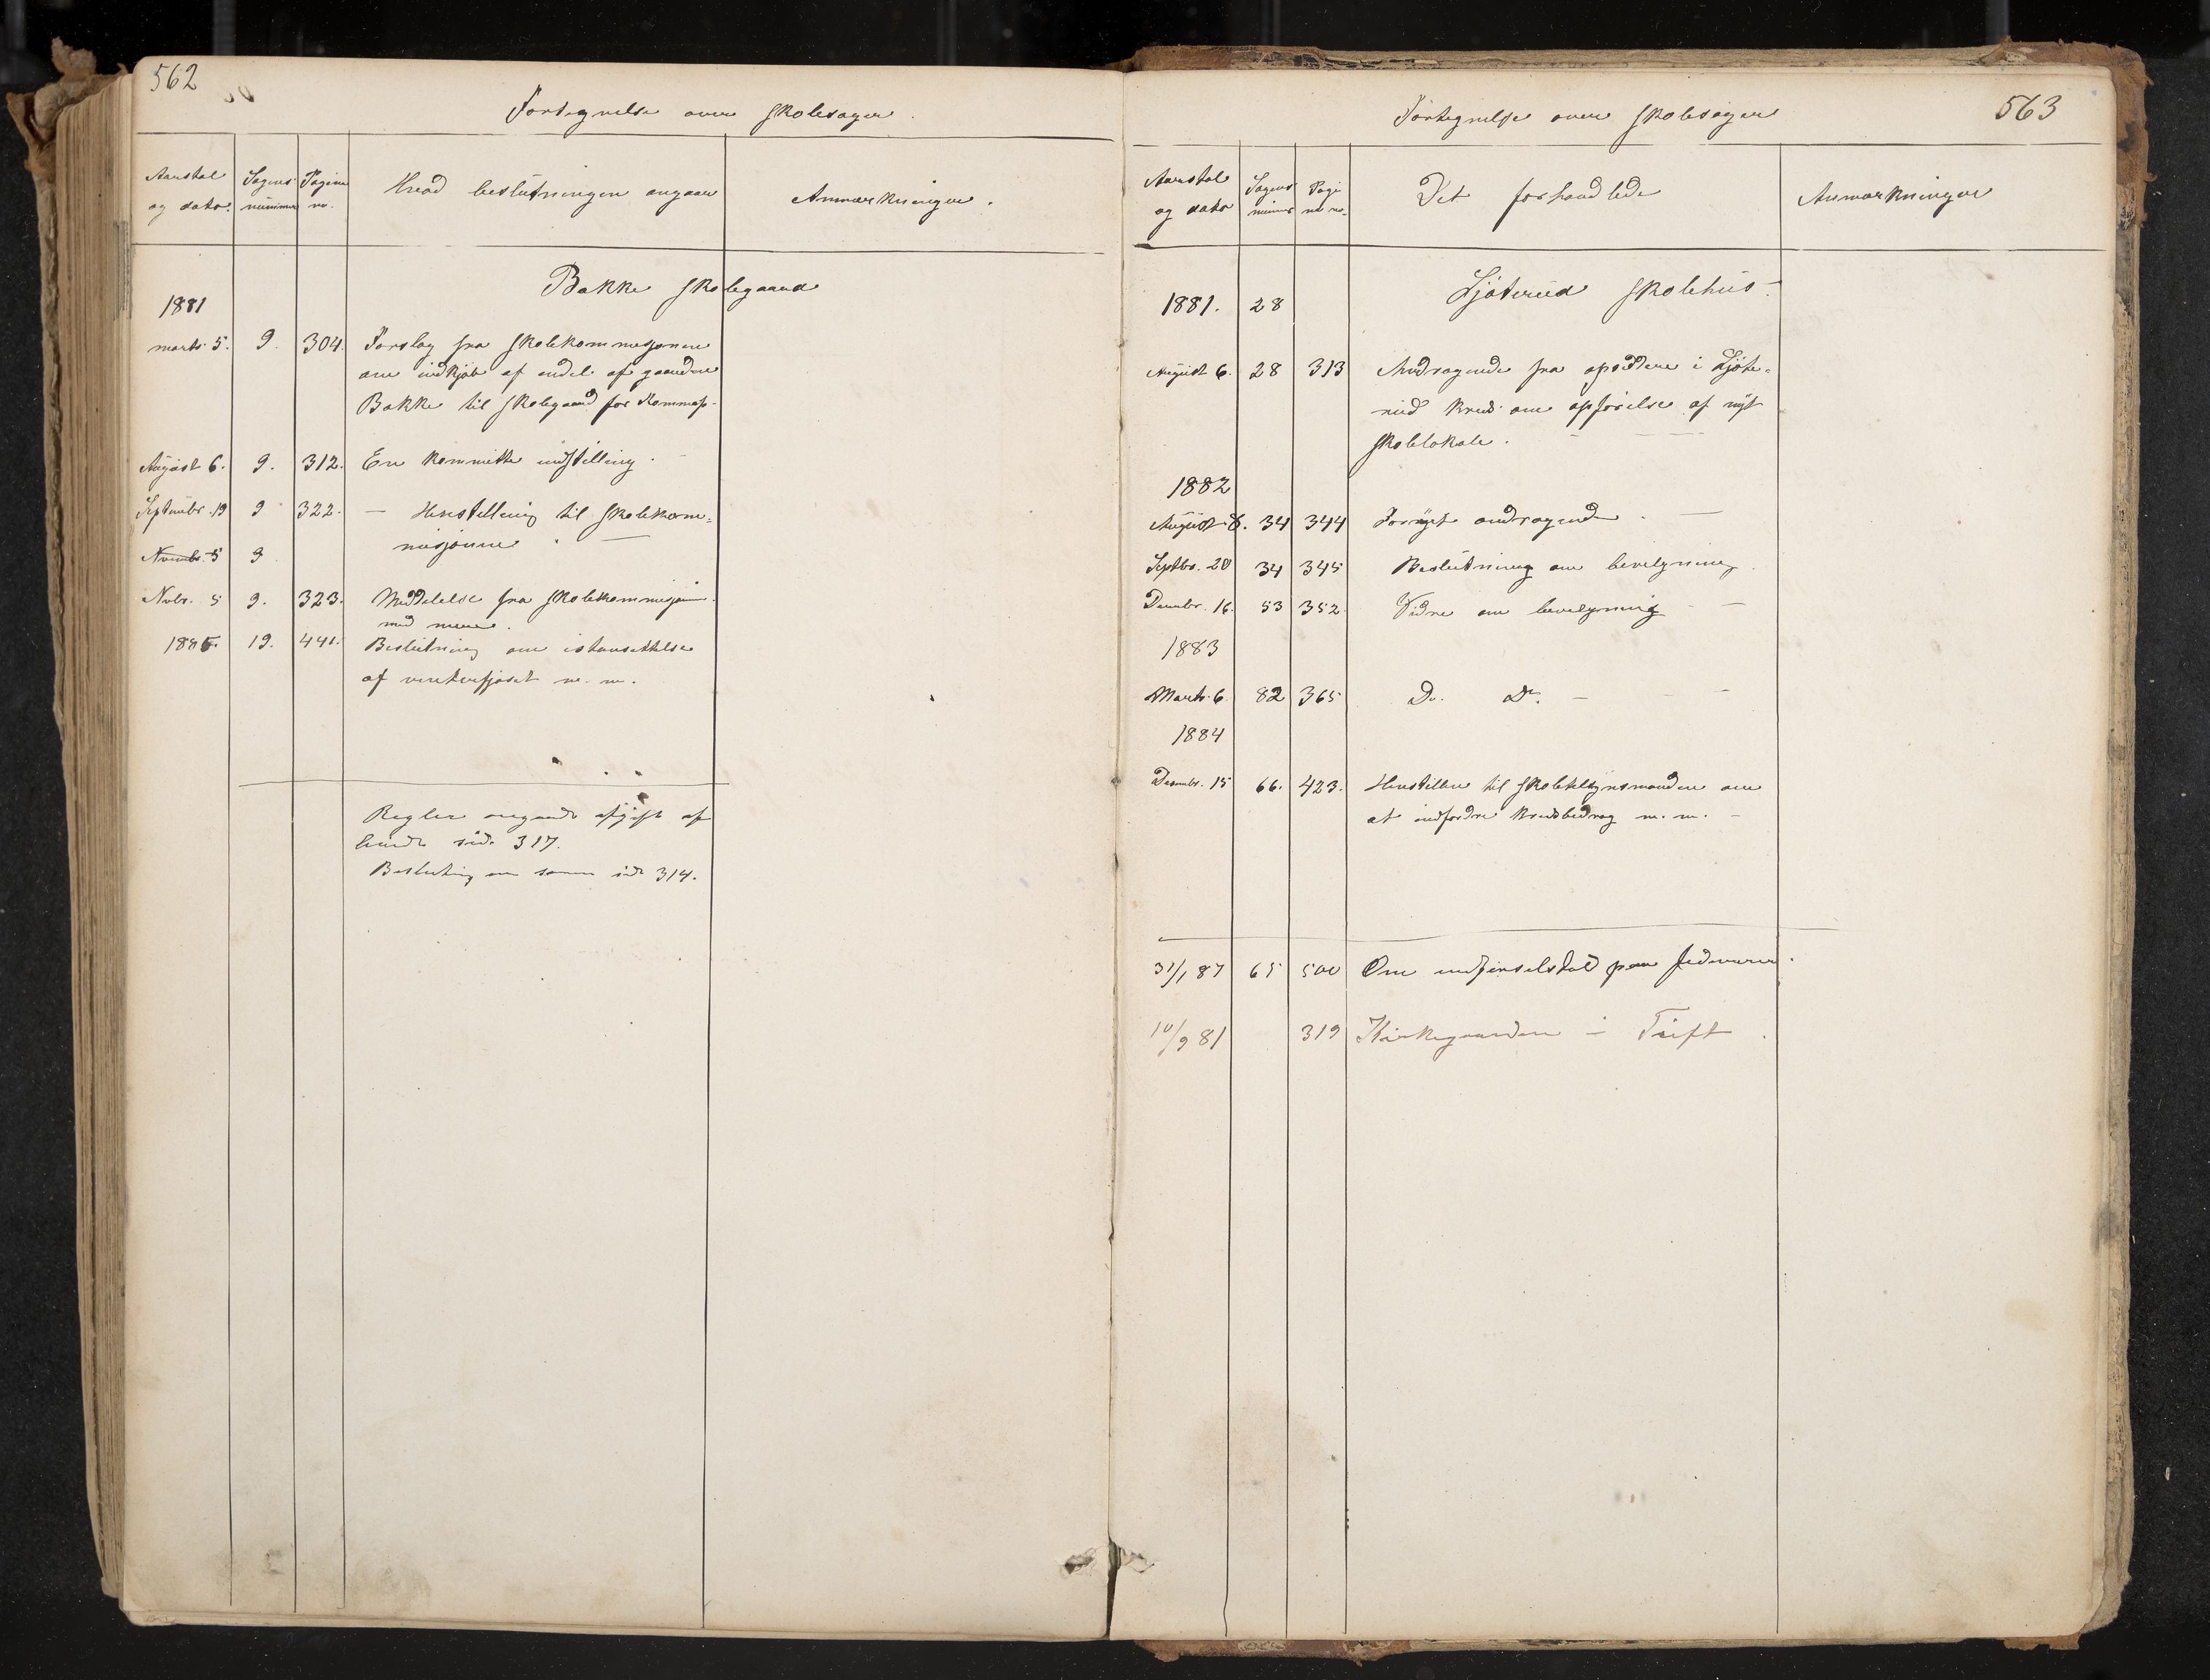 562
Fortegnelse over skolesager.
Aarstal og dato.
Sagens nummer
Pagina no.
Hvad beslutningen angaar
Anmærkninger.
Bakke skolegaard
1881
marts 5. 9. 304. Forslag fra skolekommisjonen
om indkjöb af endel af gaarden
Bakke til skolegaard for
August 6. 9. 312. En kommitte indstilling.
Septembr. 19 9 322. — Henstilling til skolekom-
misjonen. —
Novembr. 5 9
Novbr. 5 9. 323. Meddelelse fra skolekommisjonen
med mere.
1885. 19. 441. Beslutning om istansættelse
af m. m.
Regler angaande afgift af
hunde side 317.
Beslutning om samme side 314.
563
Fortegnelse over skolesager
Aarstal og dato
Sagens nummer
Pagi na no.
Det forhandlede
Anmærkninger
Ljöterud skolehus.
1881. 28
August 6. 28 313 Andragende fra opsiddere i Ljöte-
rud kreds om opförelse af nyt
skolelokale. —
1882
August 8. 34 344 Fornyet andragende. —
Septbr. 20 34 345 Beslutning om bevilgning.
Decembr. 16. 53 352. Vidre om bevilgning —
1883
Marts 6. 82 365 Do. Do. —
1884
Decembr. 15 66. 423. Henstillen til skoletilsynsmanden om
at indfordre kredsbidrag m. m. —
31/1 87 65 500 Om indförselstold paa fedevarer.
10/9 81 319 Kirkegaarden i Tuft.